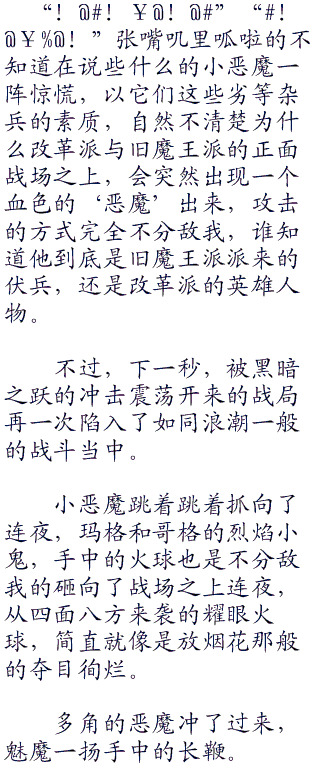 “！@#！￥@！@#”“#！
@￥%@！”张嘴叽里呱啦的不
知道在说些什么的小恶魔一
阵惊慌，以它们这些劣等杂
兵的素质，自然不清楚为什
么改革派与旧魔王派的正面
战场之上，会突然出现一个
血色的‘恶魔’出来，攻击
的方式完全不分敌我，谁知
道他到底是旧魔王派派来的
伏兵，还是改革派的英雄人
物。
不过，下一秒，被黑暗
之跃的冲击震荡开来的战局
再一次陷入了如同浪潮一般
的战斗当中。
小恶魔跳着跳着抓向了
连夜，玛格和哥格的烈焰小
鬼，手中的火球也是不分敌
我的砸向了战场之上连夜，
从四面八方来袭的耀眼火
球，简直就像是放烟花那般
的夺目徇烂。
多角的恶魔冲了过来，
魅魔一扬手中的长鞭。